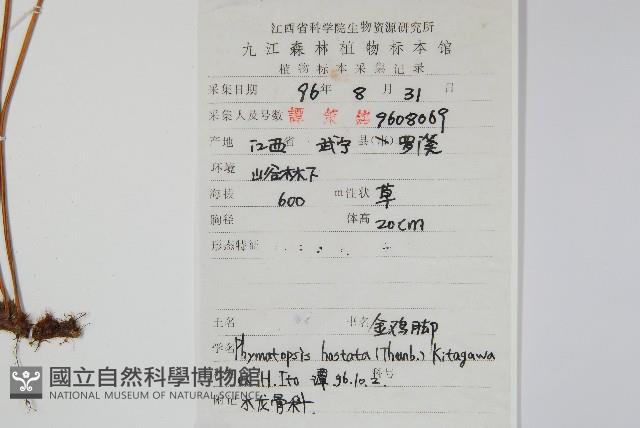 江西省科学院生物资源研究所
九江森林植物标本馆
植物标本采集记录
采集日期 96 年 8 月 31 日
采集人及号数 譚策銘 9608069
产地 江西 省 武宁 县(市) 罗溪
环境 山谷林下
海拔 600 m性状 草
胸径 体高 20cm
形态特征
土名 书名 金鸡脚
学名 Phymatopsis hastata (Thunb.) Kitagawa
ex H. Ito 譚 96.10.2. 科号
附记 水龙骨科
國立自然科學博物館
NATIONAL MUSEUM OF NATURAL SCIENCE